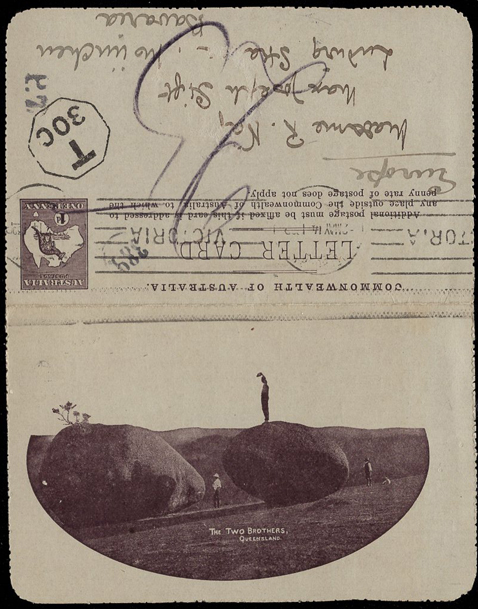 COMMONWEALTH OF AUSTRALIA.
LETTER CARD
AUSTRALIA
ONE PENNY
VICTORIA
Additional postage must be affixed if this card is addressed to
any place outside the Commonwealth of Australia, to which the
penny rate of postage does not apply.
Europe
Madame R.
Max Joseph Stift
Ludwig Str
München
Bavaria
T
30C
THE TWO BROTHERS,
QUEENSLAND.